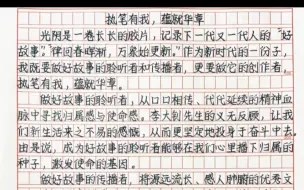 执笔有我，蕴就华章
光阴是一卷长长的胶片，记录下一代又一代人的“好
故事”。律回春晖渐，万象始更新。”作为新时代的一份子，
我既要做好故事的聆听者和传播者，更要做它的创作者，
执笔有我，蕴就华章。
做好故事的聆听者，从口口相传、代代延续的精神血
脉中寻找归属感与使命感。李大钊先生的义无反顾，让我
们新生活来之不易的感慨，从而更坚定地投身于奋斗中去。
由是说，成为好故事的聆听者能够在我们心里播下归属的
种子，激发使命的基因。
做好故事的传播者，将源远流长、感人肺腑的优秀文